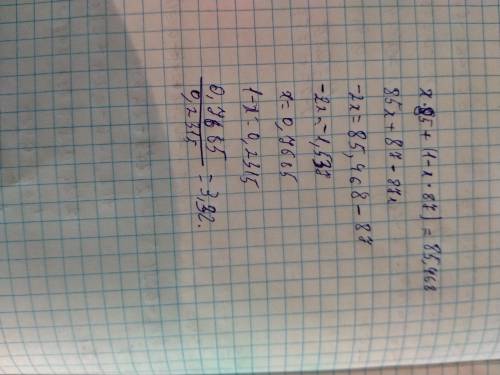 x·85 + (1-x·87) = 85,468
85x + 87 - 87x
-2x = 85,468 - 87
-2x = -1,537
x = 0,7685
1-x = 0,2315
0,7685
0,2315 = 3,32.